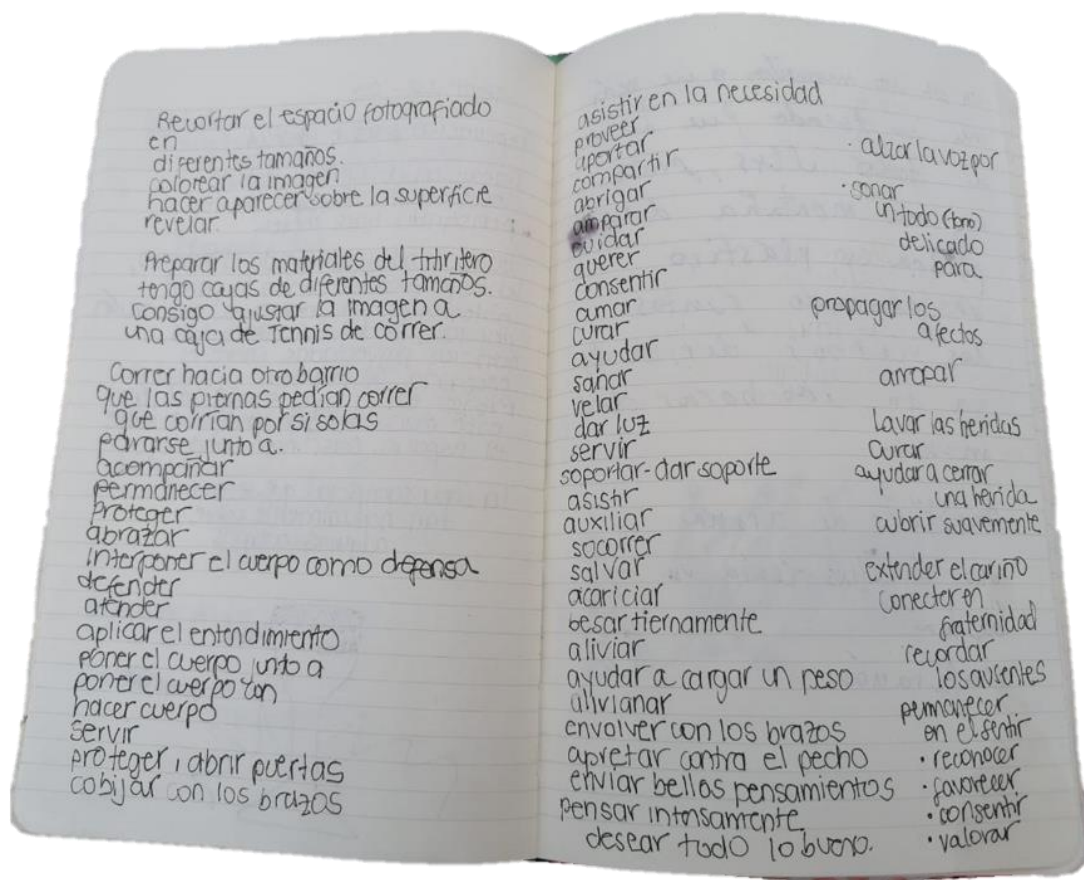 Recortar el espacio fotografiado
en
diferentes tamaños.
colorear la imagen
hacer aparecer sobre la superficie
revelar.
Preparar los materiales del titiritero
tengo cajas de diferentes tamaños.
consigo ajustar la imagen a
una caja de Tennis de correr.
Correr hacia otro barrio
que las piernas pedian correr
que corrian por si solas
pararse junto a.
acompañar
permanecer
proteger
abrazar
interponer el cuerpo como defensa
defender
atender
aplicar el entendimiento
poner el cuerpo junto a
poner el cuerpo con
hacer cuerpo
servir
proteger, abrir puertas
cobijar con los brazos
asistir en la necesidad
proveer
aportar
compartir
abrigar
amparar
cuidar
querer
consentir
amar
curar
ayudar
sanar
velar
dar luz
servir
soportar-dar soporte
asistir
auxiliar
socorrer
salvar
acariciar
besar tiernamente
aliviar
ayudar a cargar un peso
alivianar
envolver con los brazos
apretar contra el pecho
enviar bellos pensamientos
pensar intensamente
desear todo lo bueno.
· alzar la voz por
· sonar
un todo (tono)
delicado
para
propagar los
afectos
arropar
Lavar las heridas
curar
ayudar a cerrar
una herida
cubrir suavemente
extender el cariño
conectar en
fraternidad
recordar
los ausentes
permanecer
en el sentir
· reconocer
· favorecer
· consentir
· valorar